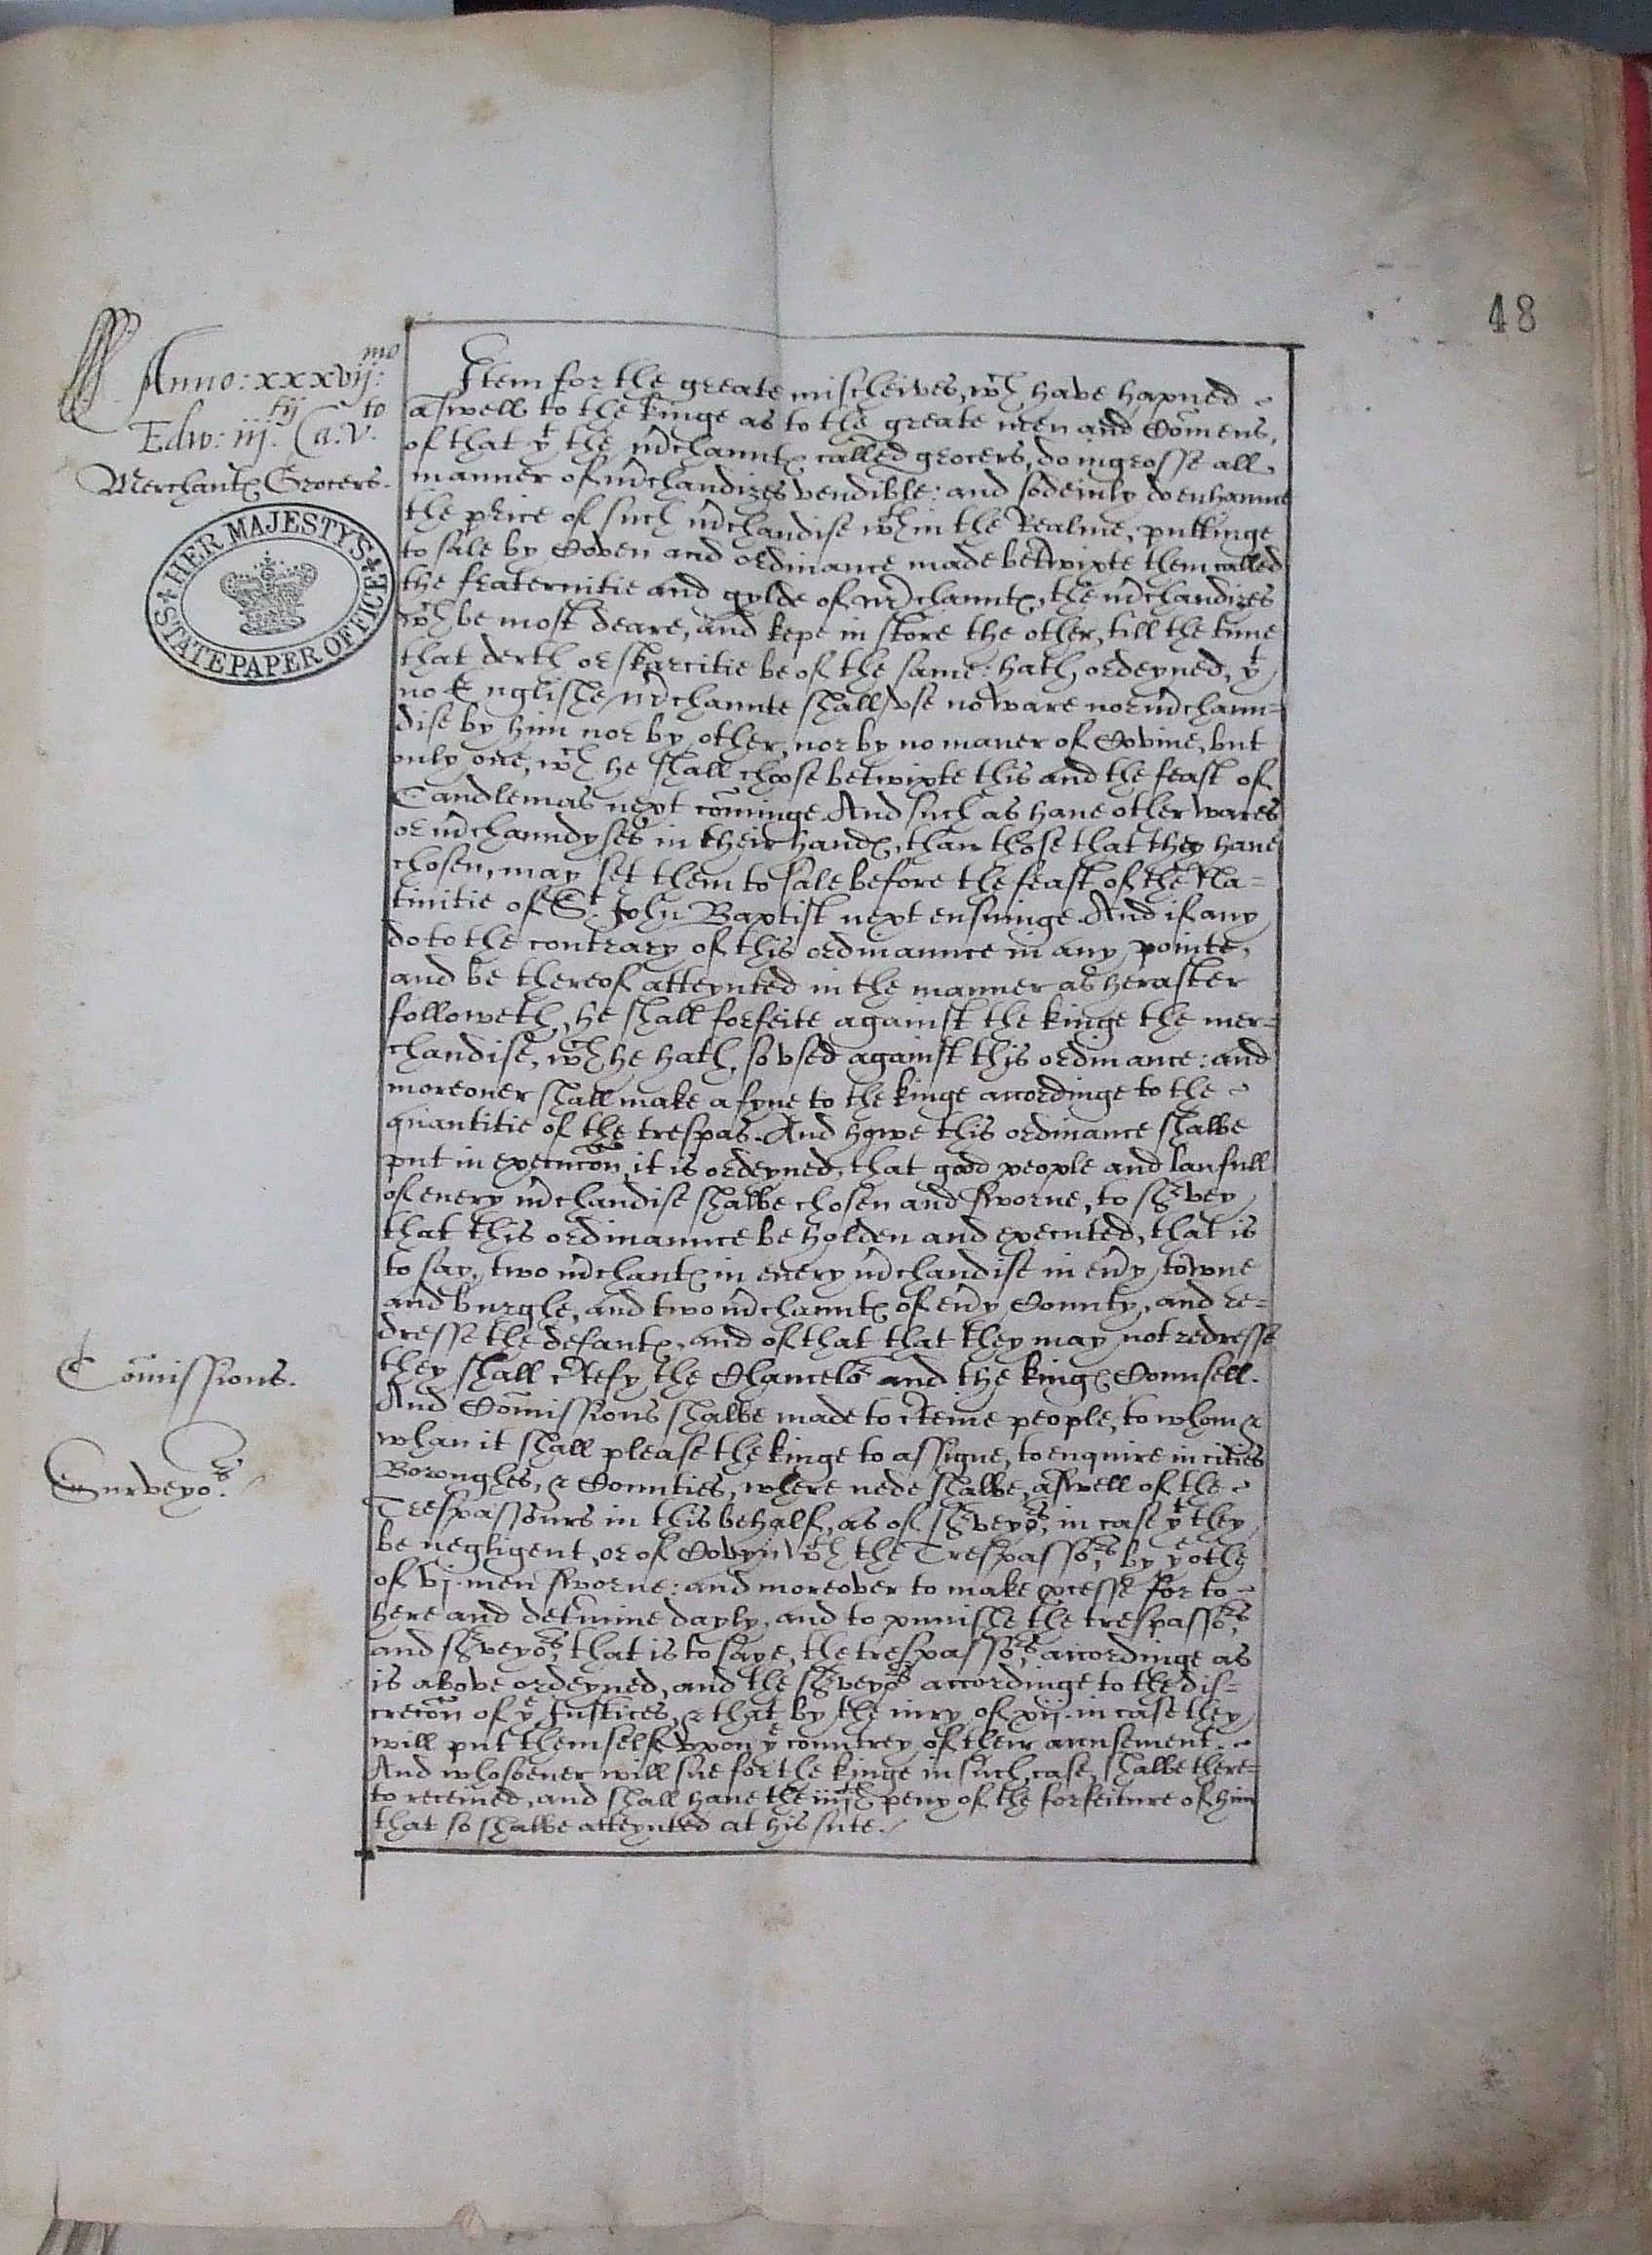 48
Anno: xxxvij:mo
Edw: iij.tij Ca. v.to
Merchantꝭ Grocers.
HER MAJESTY'S
STATE PAPER OFFICE
Item for the greate mischeives, wch have hapned
aswell to the kinge as to the greate men and Com̃ens,
of that yt the m̃chauntꝭ called grocers, do ingrosse all
manner of m̃chandizes vendible: and sodeinly do enhaunce
the price of such m̃chandise wthin the Realme, puttinge
to sale by Coven and ordinance made betwixte them called
the fraternitie and gylde of m̃chauntꝭ, the m̃chandizes
wch be most deare, and kepe in store the other, till the time
that derth or skarcitie be of the same: hath ordeyned, yt
no Englishe m̃chaunte shall vse no ware nor m̃chaun=
dise by him nor by other, nor by no maner of Covine, but
only one, wch he shall choose betwixte this and the feast of
Candlemas next com̃inge. And such as haue other wares
or m̃chaundyses in their handꝭ, than those that they haue
chosen, may set them to sale before the feast of the Na=
tiuitie of St. John Baptist next ensuinge. And if any
do to the contrary of this ordinaunce in any pointe,
and be thereof atteynted in the manner as herafter
followeth, he shall forfeite against the kinge the mer=
chandise, wch he hath so vsed against this ordinance: and
moreouer shall make a fyne to the kinge accordinge to the
quantitie of the trespas. And howe this ordinance shalbe
put in execuc̃on, it is ordeyned, that good people and laufull
of euery m̃chandise shalbe chosen and sworne, to sr̃vey
that this ordinaunce be holden and executed, that is
to say, two m̃chantꝭ in euery m̃chandise in eu̾y towne
and burghe, and two m̃chauntꝭ of eu̾y County, and re=
dresse the defautꝭ, and of that that they may not redresse
they shall c̾tefy the Chancelor and the kingꝭ Counsell.
Com̃issions.
And Com̃issions shalbe made to c̾teine people, to whom &
whan it shall please the kinge to assigne, to enquire in cities
Surveyors.
Boroughes, & Counties, where nede shalbe, aswell of the
Trespassours in this behalf, as of sr̃veyors, in case yt they
be negligent, or of Covyn wth the Trespassors, by ye othe
of vj. men sworne: and moreover to make processe for to
here and det̾mine dayly, and to punishe the trespassors,
and sr̃veyors, that is to saye, the trespassors, accordinge as
is above ordeyned, and the sr̃veyors accordinge to the dis=
crec̃on of ye Justices, & that by the iury of xij. in case they
will put themself vpon ye countrey of their acusement.
And whosoeuer will sue for the kinge in such case, shalbe there=
to receiued, and shall haue the iiijth peny of the forfeiture of him
that so shalbe atteynted at his sute.